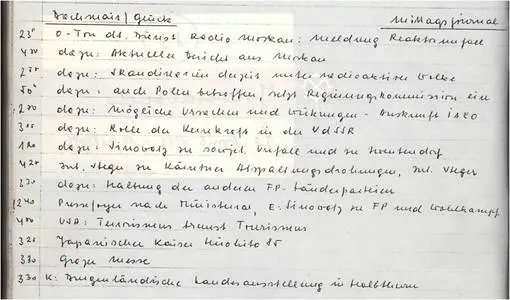 Bachmair/Glück Mittagsjournal
23" O-Ton dt. Dienst Radio Moskau: Meldung Reaktorunfall
4 dazu: Aktueller Bericht aus Moskau
2 dazu: Skandinavien derzeit unter radioaktiver Wolke
50" dazu: auch Polen betroffen, setzt Regierungskommission ein
2 dazu: Mögliche Ursachen und Wirkungen - Auskunft IAEO
3 dazu: Rolle der Kernkraft in der UdSSR
1 dazu: Sinowatz zu sowjet. Unfall und zu Zwentendorf
4 Int. Steger zu Kärntner Abspaltungsdrohungen, Int. Steger
3 dazu: Haltung der anderen FP-Länderparteien
12 Pressefoyer nach Ministerrat, E: Sinowatz zu FP und Wahlkampf
4 USA: Terrorismus bremst Tourismus
3 Japanischer Kaiser Hirohito 85
330 Grazer Messe
330 K: Burgenländische Landesausstellung in Halbturn